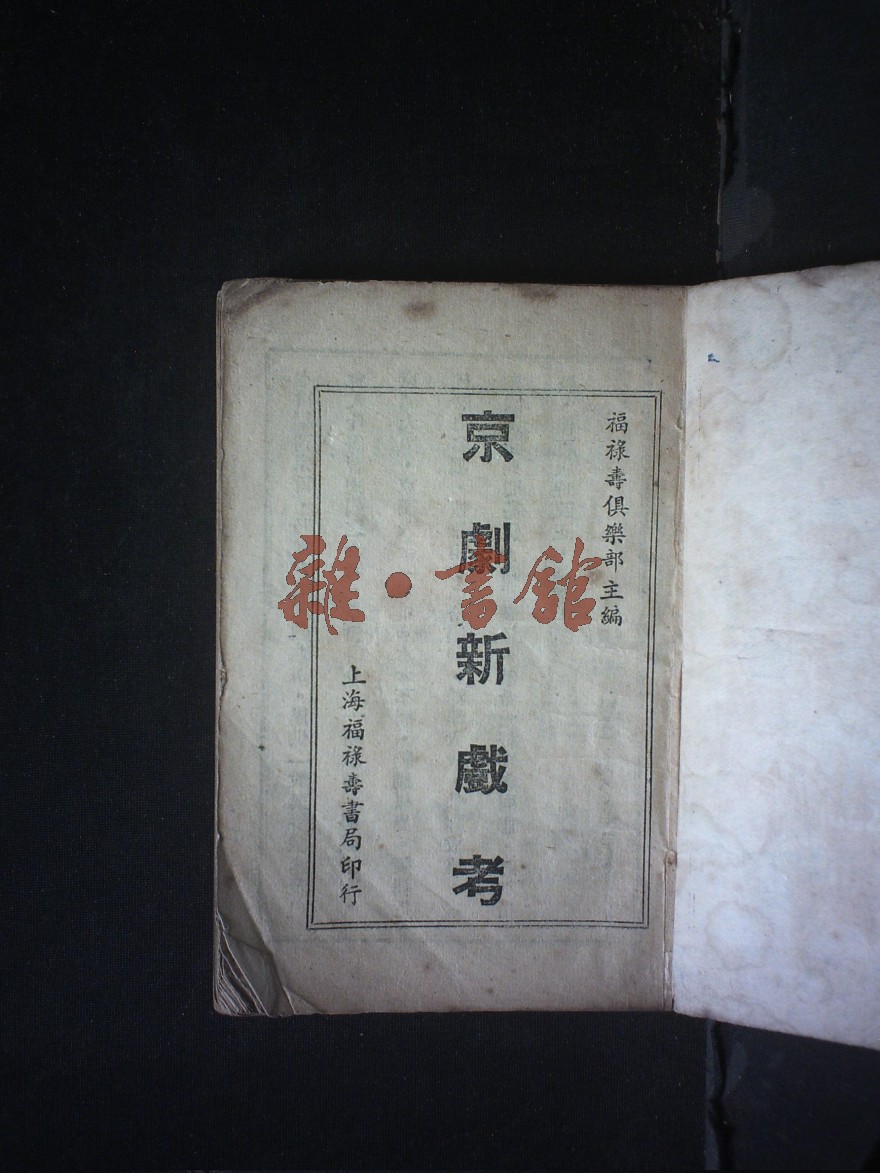 福祿壽俱樂部主編
京劇新戲考
上海福祿壽書局印行
雜·書館